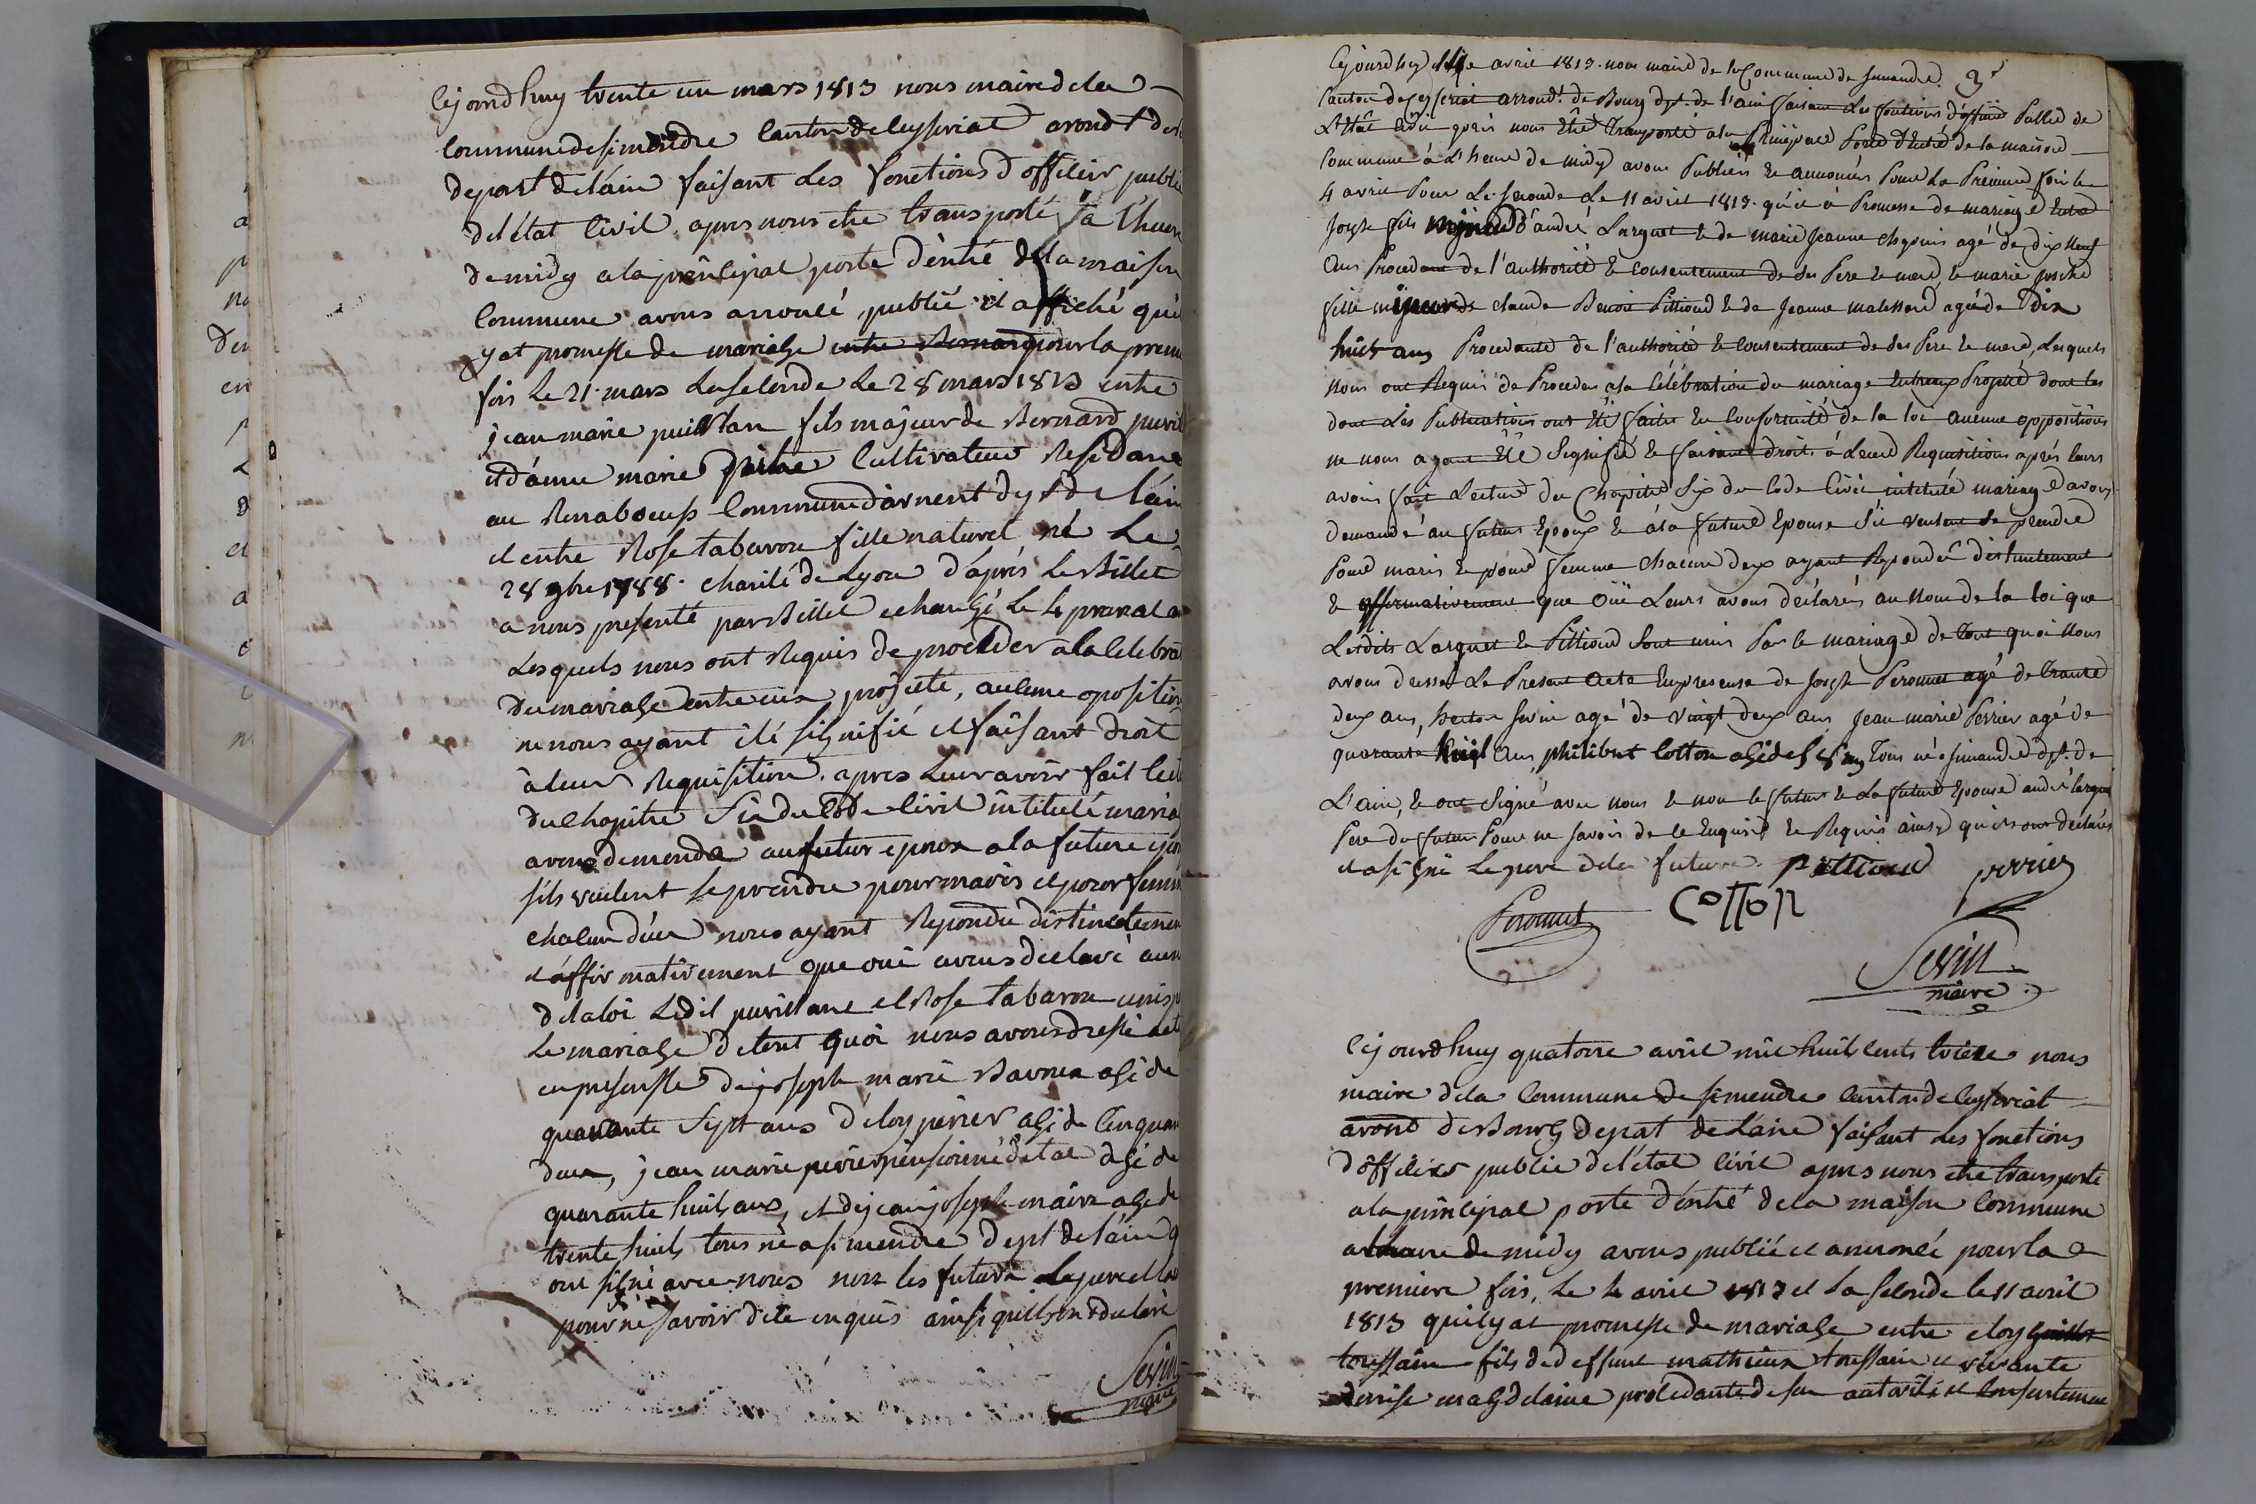 Cejourdhuy trente un mars 1813 nous maire de la
Commune de simandre Canton de Ceyseriat arond t de
depart de lain faisant les fonctions d officier public
de l état civil apres nous etre transporté a l'heure
de midy a la principal porte d'entré de la maison
commune avons anoncé, publié et affiché qui
y at promesse de mariage entre Bernard pour la premi
fois le 21 mars la seconde le 28 mars 1813 entre
jean marie fils majeur de Bernard
et d'anne marie Cultivateur Residant
au commune d'arnent dpt de lain
et entre Rose tabaron fille naturel né le
28 9bre 1788 charité de Lyon d'aprés le Billet
a nous presenté par Billet echangé le 4 prerial
Lesquels nous ont Requis de proceder a la celebrat
du mariage entre eux projeté, aucune oposition
ne nous ayant été signifié et faisant droit
à leur Requisition, apres leur avoir fait lect
du chapitre six du Code Civil intitulé maria
avons demendé au futur epoux a la future epou
s'ils veulent se prendre pour maris et pour femm
chacun d'eux nous ayant Repondu distinctemen
et affirmativement que oui avons declaré au n
de la loi Ledit et Rose tabaron unis p
le mariage de tout quoi nous avons dressé act
en presensse de joseph marie agé de
quarante sept ans d'eloy perier agé de cinquan
deux, jean marie perier pensionné d'etat agé de
quarante huit ans, et de jean joseph maire agé de
trente huit, tous né a simendre dept de láin q
ont signé avec nous non les futurs Le pere et la
pour ne savoir de ce enquis ainsi quils ont declaré
Sevin
maire
Cejourdhuy avril 1813. nous maire de la Commune de simandre 3e
Canton de Ceyseriat arrondt. de Bourg dpt. de l'ain faisant les fonctions d'officier Public de
L'Etât Civil après nous Etre Transporté a la Principale Porte d'Entré de la maison
Commune à L'heure de midy avons Publiés et annoncés Pour La Premiere fois le
4 avril Pour La Seconde Le 11 avril 1813. qu'il à Promesse de mariage Entre
Joseph fils mineur d'andré Larguet et de marie Jeanne agé de dix neuf
ans Procedant de l'authorité et Consentement de ses Pere et mere, et marie josephe
fille mineure de claude Benoit Pittiond et de Jeanne agée de dix
huit ans Procedante de l'authorité et Consentement de ses Pere et mere, Lesquels
nous ont Requis de Proceder a la Célébration du mariage Entreeux Projetté dont les
dont Les Publications ont Eté faites En Conformité de la loi aucune opposition
ne nous ayant Eté Signifié et faisant droit à Leurs Requisitions aprés leurs
avoir fait Lecture du Chapitre Six du Code Civil intitulé mariage avons
demandé au futur Epoux et à la future Epouse s'ils veulent se prendre
Pour maris et pour femme Chacun deux ayant Repondu distinctement
et affirmativement que Oüi Leurs avons déclarés au Nom de la loi que
Lesdits Larguet et Pittiond sont unis Par le mariage de Tout quoi Nous
avons dressé Le Present acte Enpresence de Joseph Peronnet agé de Trante
deux ans, Sevin agé de vingt deux ans Jean marie Perrier agé de
quarante huit ans, philibert cotton agé de ans Tous né à simandre dpt. de
L'ain, et ont signé avec nous et non le futur et La future Epouse andré larguet
Pere du futur Pour ne savoir de ce Enquis et Requis ainsi qu'ils ont declarés
et a signé Le pere de la future. pittiond perrier
Peronnet Cotton
Sevin
maire
Cejourdhuy quatorze avril mil huit cents treize nous
maire de la Commune de simendre Canton de Ceyseriat
arond de Bourg depat de Láin faisant les fonctions
d'officier public de l'etat civil apres nous etre transporté
a la principal porte d'entré de la maison Commune
a l'heure de midy avons publié et annoncé pour la
premiere fois, Le 4 avril 1813 et la seconde le 11 avril
1813 quil y at promesse de mariage entre eloy
toussain fils de deffunt mathieux toussain et vivante
denise magdelaine procedante de son autorité et consentement